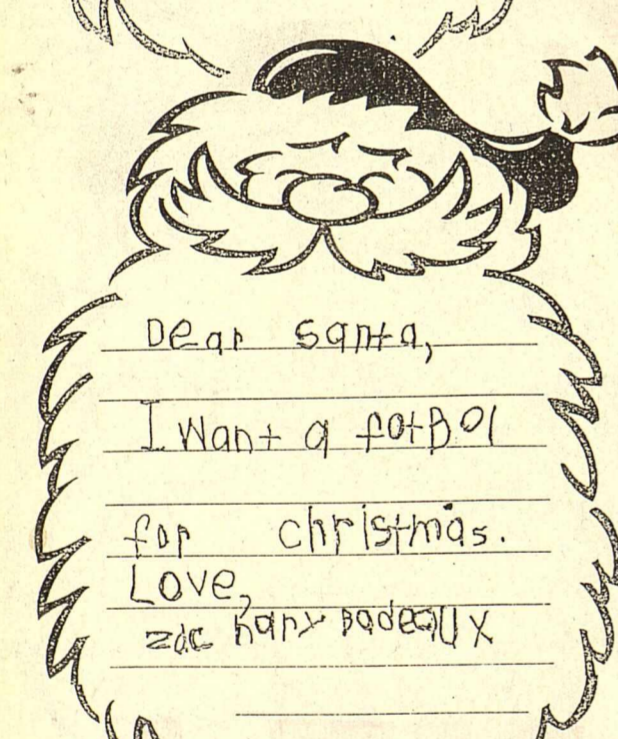 Dear Santa,
I Want a fotBol
for christmas.
Love,
zac hary Badeaux